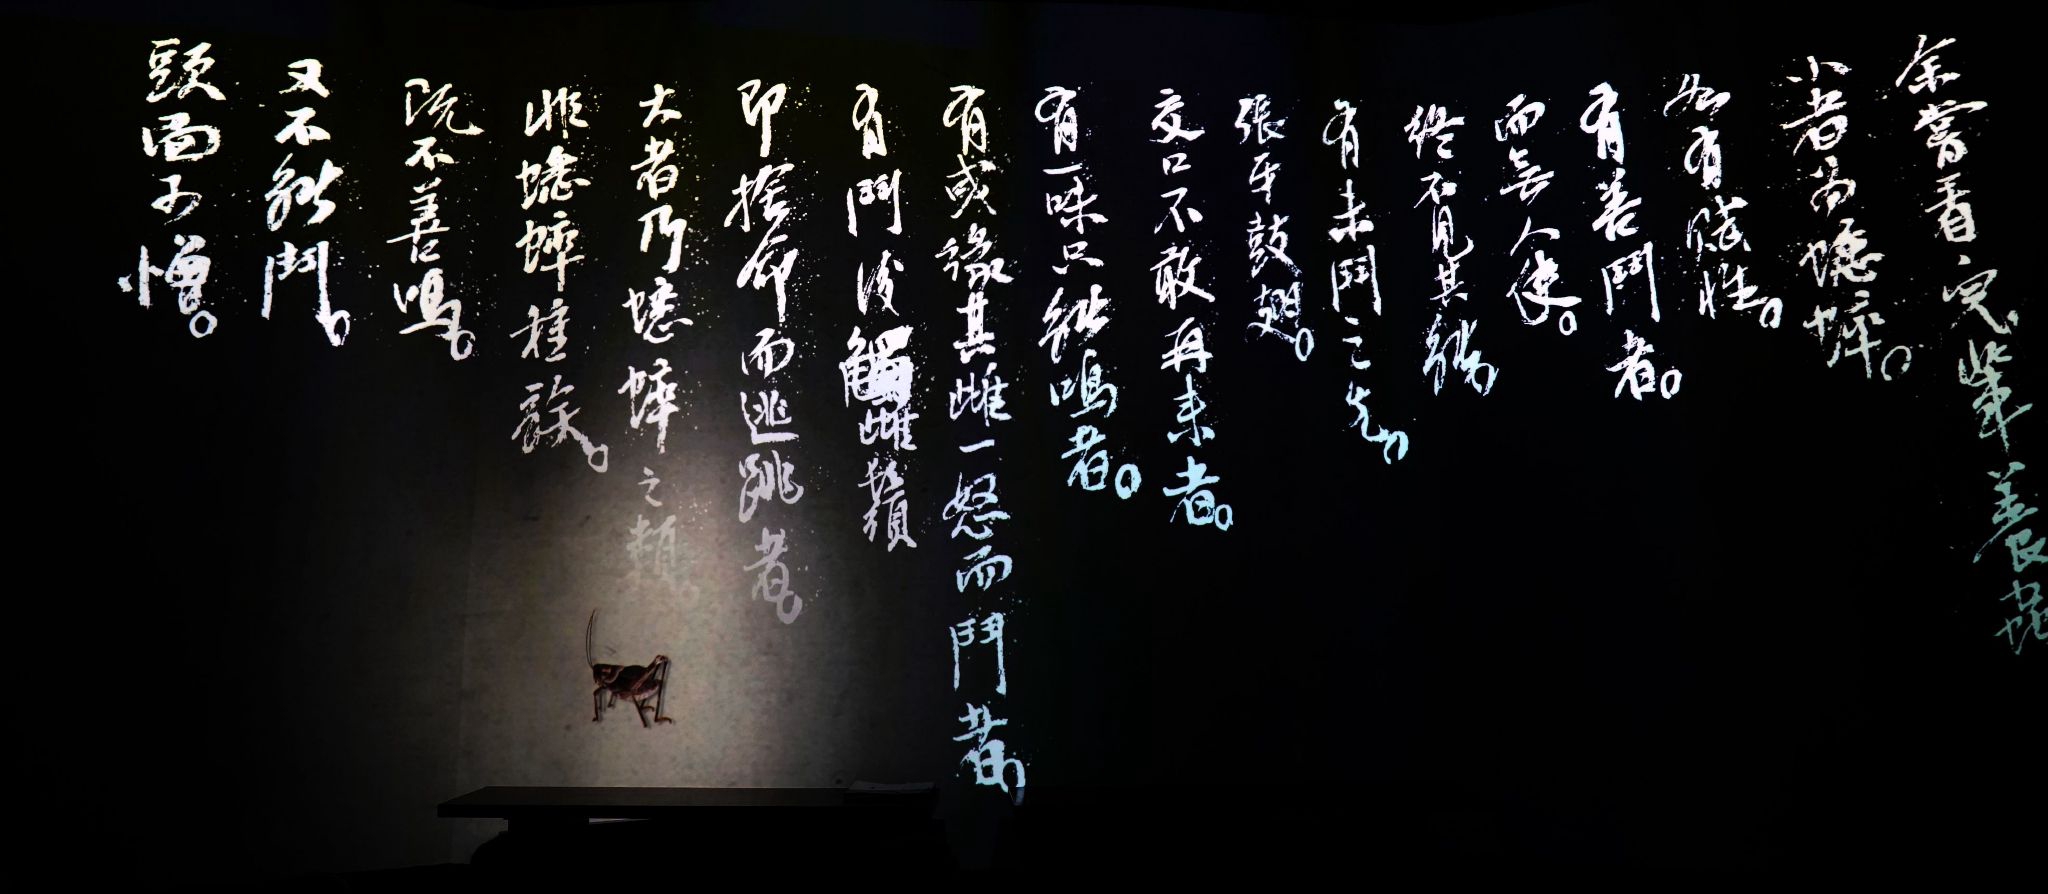 余嘗看完輩善養蟲
小者為蟋蟀。
各有賦性。
有善鬥者。
而無人使。
終不見其能
有未鬥之先。
張牙鼓翅。
交口不敢再來者。
有一味只能鳴者。
有或緣其雌一怒而鬥者，
有鬥後觸雌鬚
即捨命而逃跳者。
大者乃蟋蟀之類。
非蟋蟀種類。
既不善鳴。
又不能鬥。
頭面可憎。